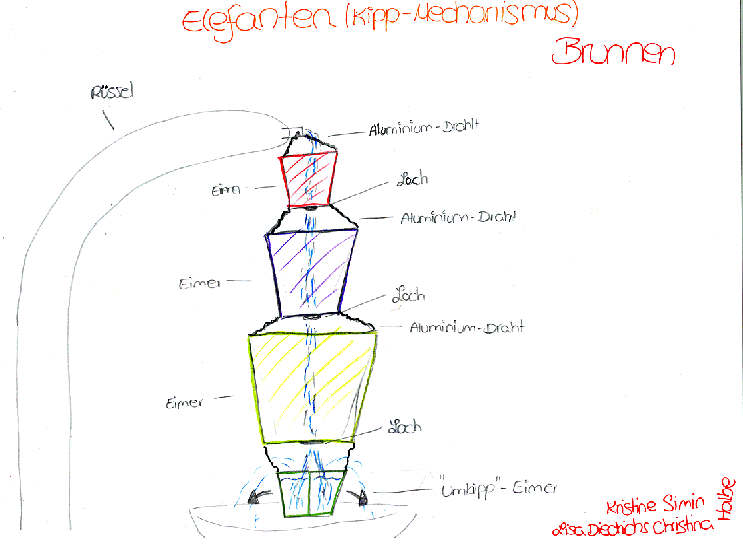 Elefanten (Kipp-Mechanismus)
Brunnen
Rüssel
Aluminium-Draht
Eimer
Loch
Aluminium-Draht
Eimer
Loch
Aluminium-Draht
Eimer
Loch
"Umkipp"-Eimer
Kristine Simin
Lisa Diedrichs Christina
Halbe